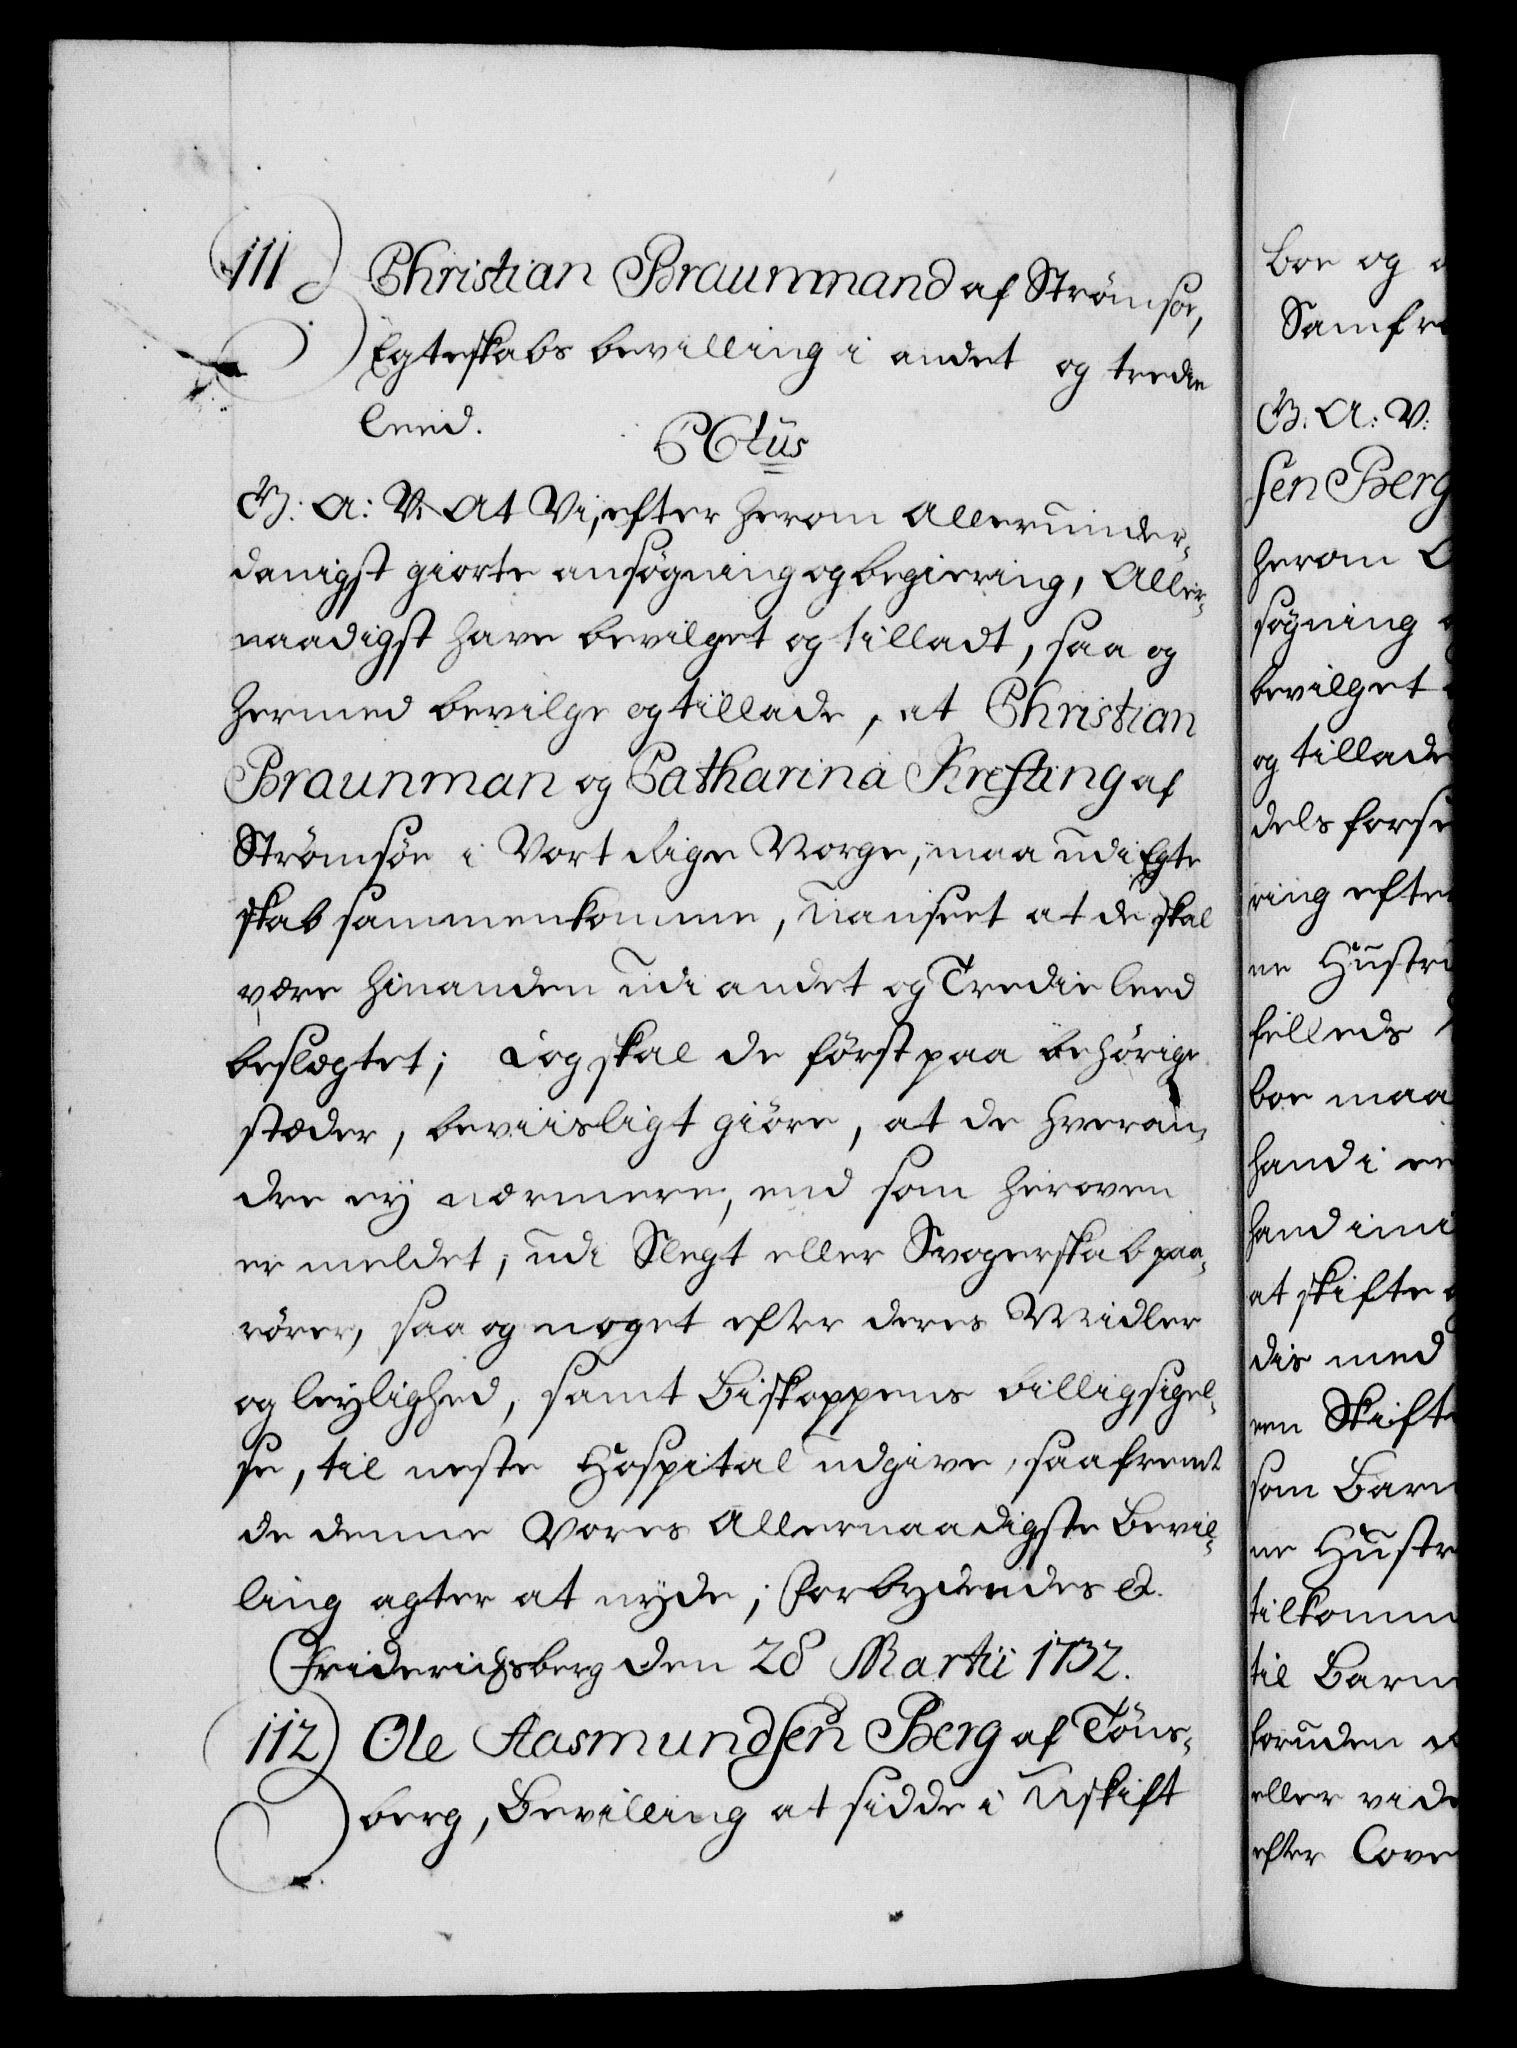 111) Christian Braunmand af Strømsøe,
Egteskabs bevilling i andet og tredie
leed.
C 6tus
G. A: V. At Vi, efter herom allerunder-
danigst giorte ansøgning og begiering, Aller-
naadigst have bevilget og tilladt, saa og
hermed bevilge og tillade, at Christian
Braunman og Catharina Krefting af
Strømsøe i Vort Rige Norge, maa udi Egte
skab sammenkomme, uanseet at de skal
være hinanden udi andet og Tredie leed
beslægtet; dog skal de først paa behørige
stæder, beviisligt giøre, at de hveran-
dre ey nærmere, end som heroven
er meldet, udi Slegt eller Svogerskab paa-
rører, saa og noget efter deres Midler
og leylighed, samt Biskoppens billigsigel-
se, til neste Hospital udgive, saafremt
de denne Vores Allernaadigste Bevil-
ling agter at nyde; Forbydendes &.
Friderichsberg den 28 Martii 1732.
112) Ole Aasmundsen Berg af Tøns-
berg, Bevilling at sidde i Uskift
boe og
Samfr
G. A: V:
sen Berg
herom
søgning
bevilget
og tillade
dels forse
ring efter
ne Hustru
felleds
boe maa
hand i
hand imi
at skifte
dis med
een Skifte
som Barn
ne Hustr
tilkomm
til Barn
foruden
eller vide
efter Love